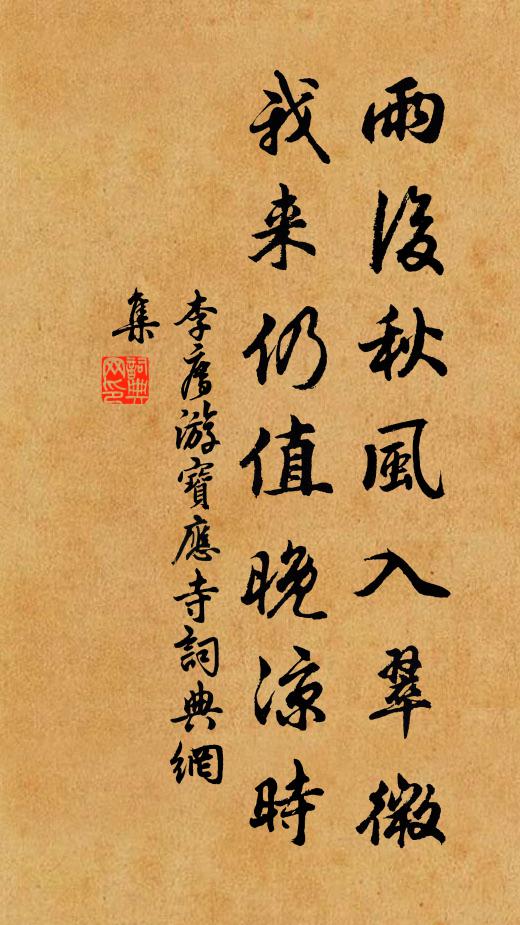 雨後秋風入翠微
我来仍值晚凉時
李膺游寶應寺詞典網
集
詞典
网印